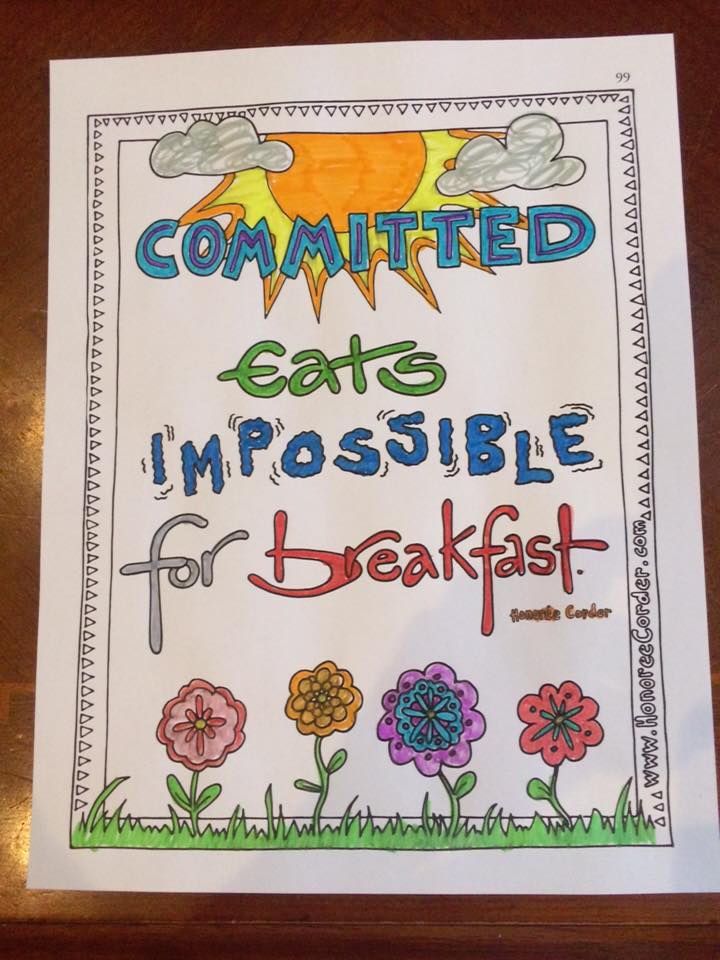 99
COMMITTED
Eats
IMPOSSIBLE
for breakfast.
Honorée Corder
www.HonoreeCorder.com